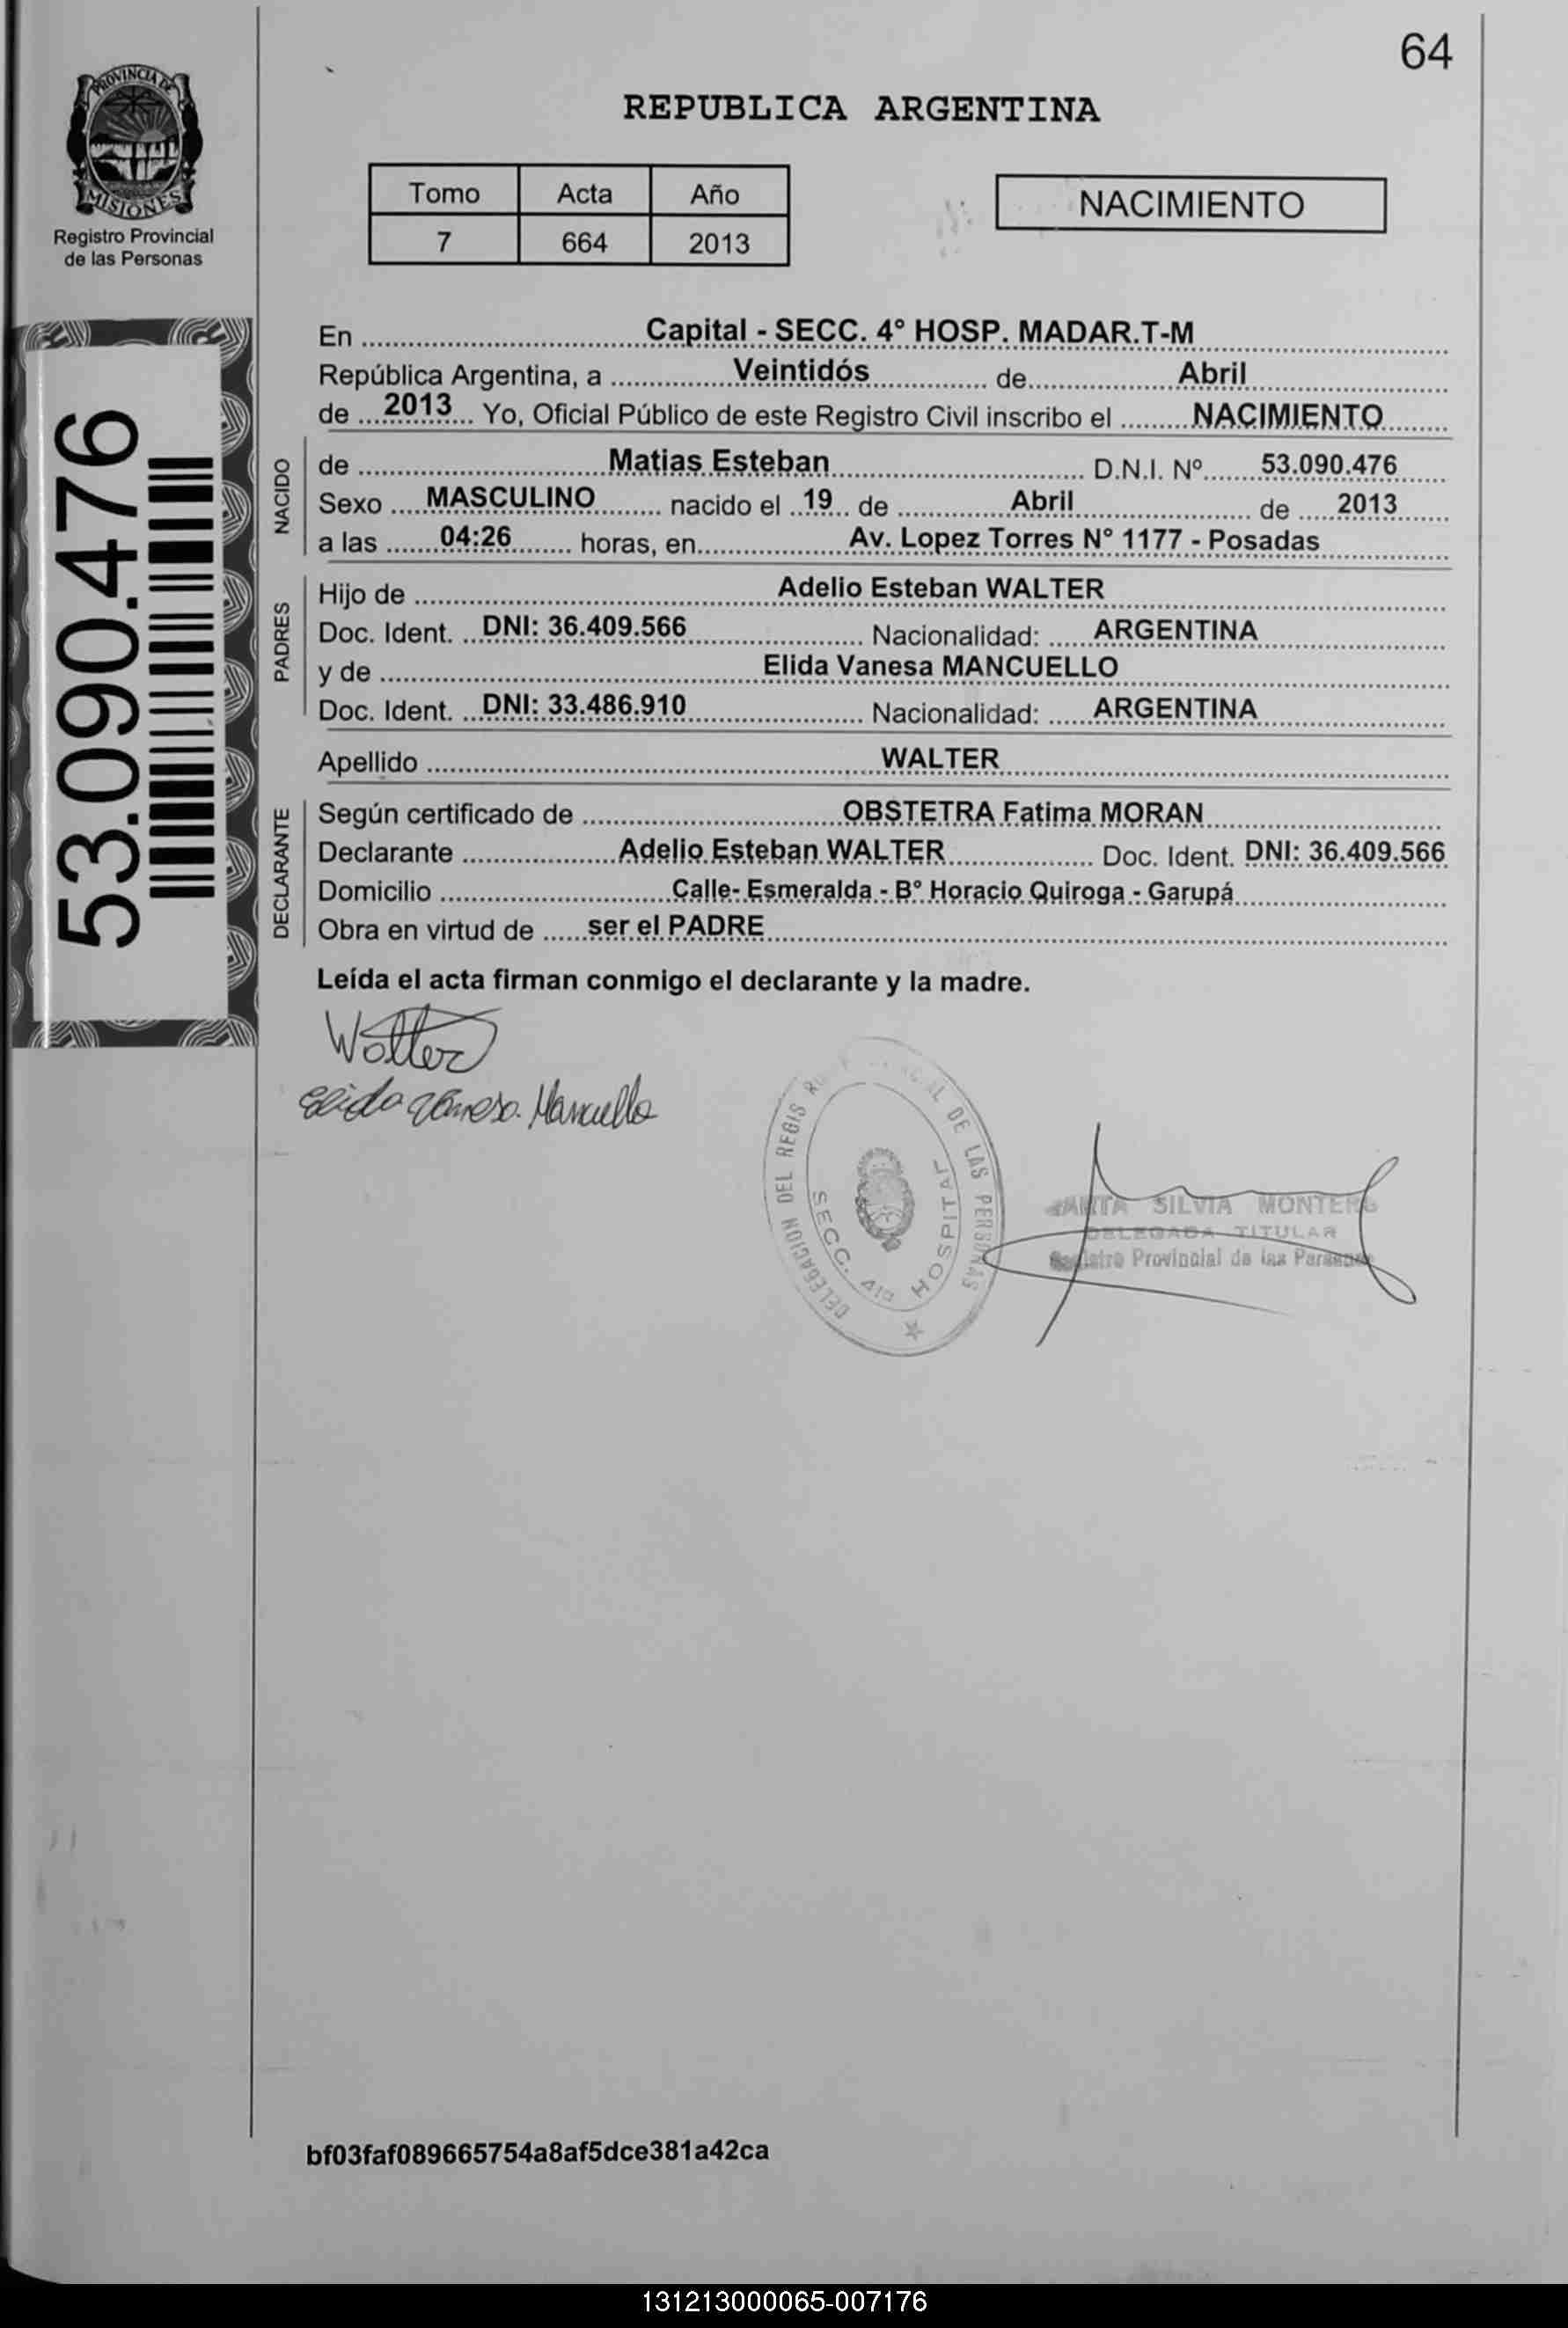 64
PROVINCIA DE
MISIONES
Registro Provincial
de las Personas
REPUBLICA ARGENTINA
Tomo Acta Año
7 664 2013
NACIMIENTO
53.090.476
En ............ Capital - SECC. 4º HOSP. MADAR.T-M ............
República Argentina, a ............ Veintidós ............ de ............ Abril ............
de ... 2013 ... Yo, Oficial Público de este Registro Civil inscribo el ......... NACIMIENTO .........
NACIDO
de ............ Matias Esteban ............ D.N.I. Nº ...... 53.090.476 ......
Sexo .... MASCULINO ......... nacido el .. 19 .. de ............ Abril ............ de ..... 2013 ......
a las ....... 04:26 ........ horas, en ............ Av. Lopez Torres N° 1177 - Posadas ............
PADRES
Hijo de ............ Adelio Esteban WALTER ............
Doc. Ident. ... DNI: 36.409.566 ............ Nacionalidad: ..... ARGENTINA ............
y de ............ Elida Vanesa MANCUELLO ............
Doc. Ident. ... DNI: 33.486.910 ............ Nacionalidad: ..... ARGENTINA ............
Apellido ............ WALTER ............
DECLARANTE
Según certificado de ............ OBSTETRA Fatima MORAN ............
Declarante ............ Adelio Esteban WALTER ............ Doc. Ident. DNI: 36.409.566
Domicilio ............ Calle- Esmeralda - Bº Horacio Quiroga - Garupá ............
Obra en virtud de ...... ser el PADRE ............
Leída el acta firman conmigo el declarante y la madre.
Walter
Elida Vanesa Mancuello
DELEGACION DEL REGIS DE LAS PERSONAS
SECC. 4ta HOSPITAL
SILVIA MONTERO
DELEGADA TITULAR
Registro Provincial de las Personas
bf03faf089665754a8af5dce381a42ca
131213000065-007176